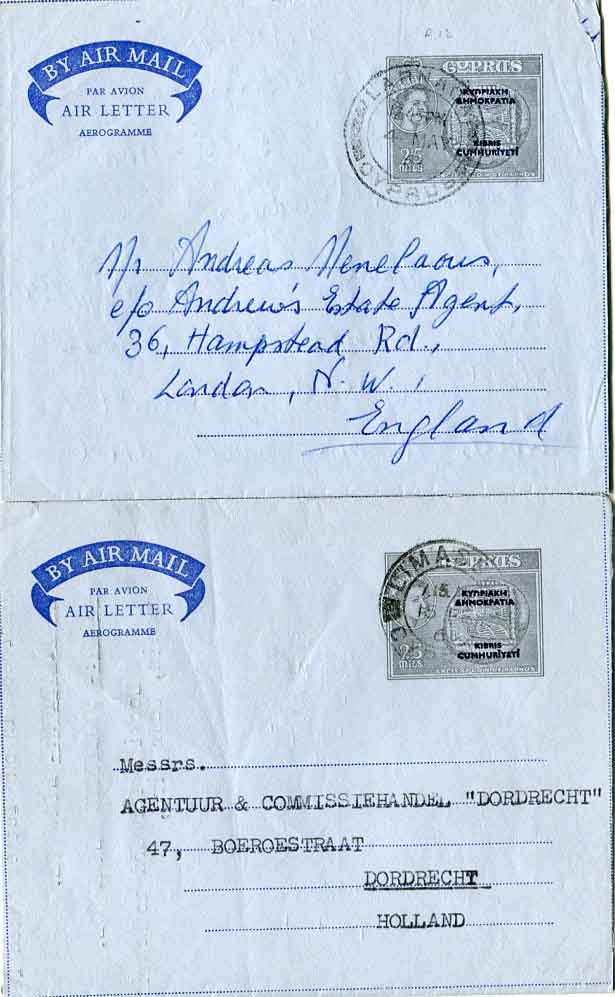 R.12
BY AIR MAIL
PAR AVION
AIR LETTER
AEROGRAMME
CYPRUS
ΚΥΠΡΙΑΚΗ
ΔΗΜΟΚΡΑΤΙΑ
KIBRIS
CUMHURİYETİ
25
MILS
CYPRUS
Mr Andreas Menelaous,
c/o Andrew's Estate Agent,
36, Hampstead Rd.,
London, N.W.1
England
BY AIR MAIL
PAR AVION
AIR LETTER
AEROGRAMME
LIMAS
ΚΥΠΡΙΑΚΗ
ΔΗΜΟΚΡΑΤΙΑ
KIBRIS
CUMHURİYETİ
25
MILS
Messrs.
AGENTUUR & COMMISSIEHANDEL "DORDRECHT"
47, BOEROESTRAAT
DORDRECHT
HOLLAND